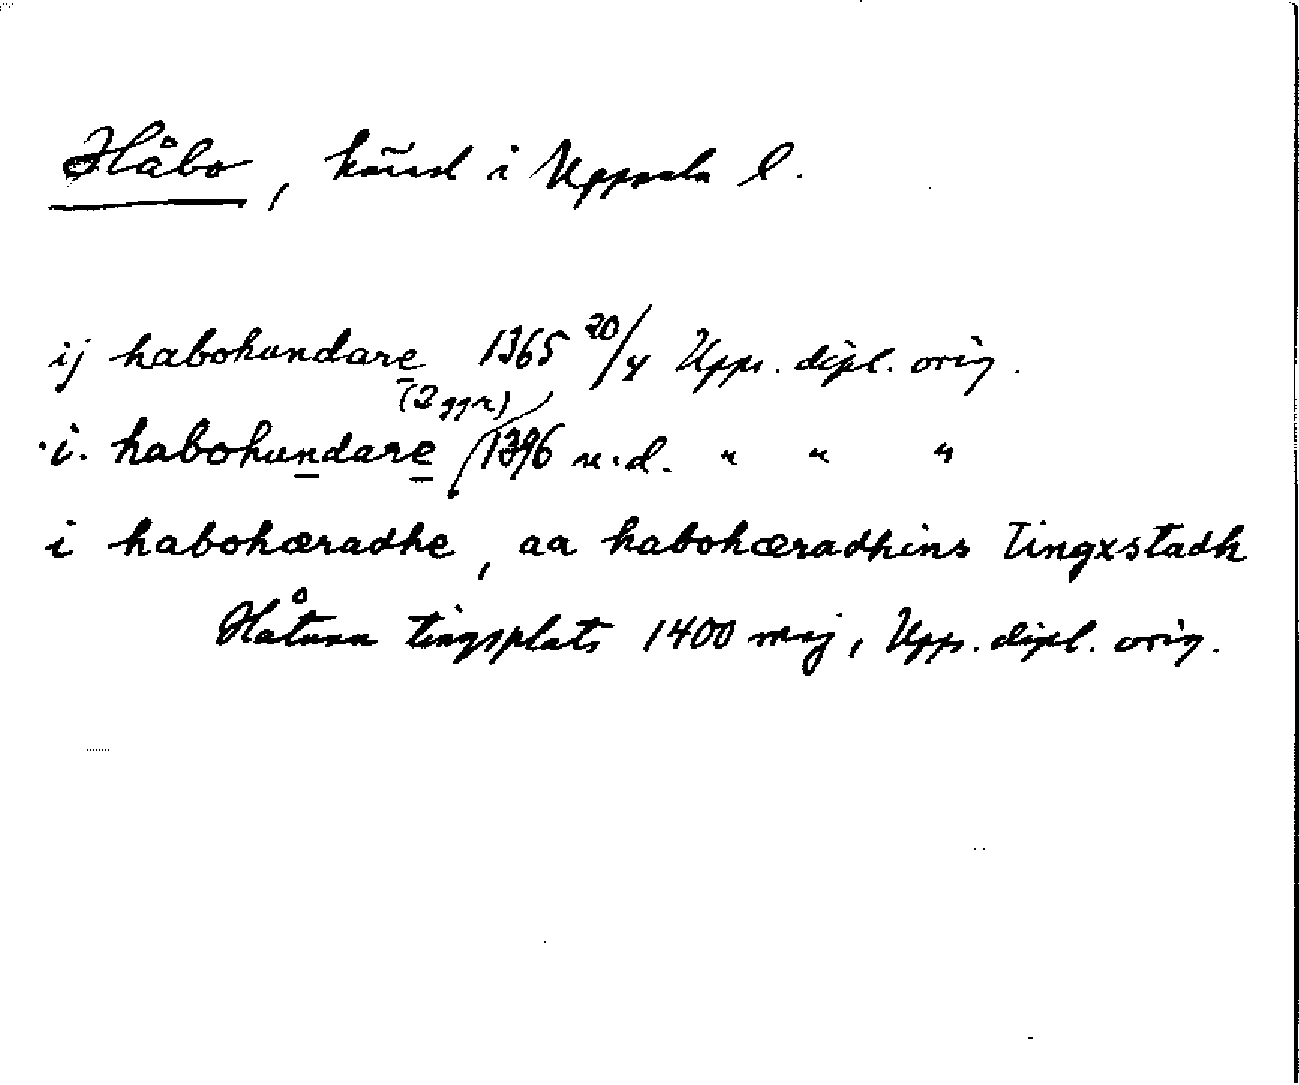 Håbo, härad i Uppsala l.
ij habohundare 1365 20/4 Upps. dipl. orig.
i habohundare (2 ggr) 1396 u.d. " " "
i habohæradhe, aa habohæradhins Tingxstadh
Håtuna tingsplats 1400 maj, Upps. dipl. orig.